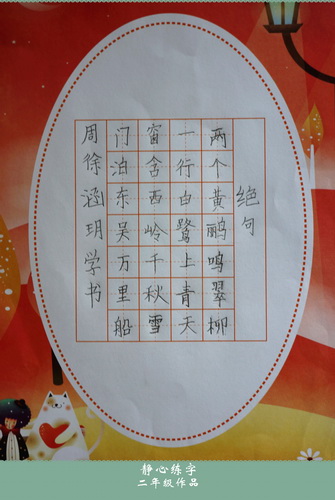 绝句
两个黄鹂鸣翠柳
一行白鹭上青天
窗含西岭千秋雪
门泊东吴万里船
周徐涵玥学书
静心练字
二年级作品